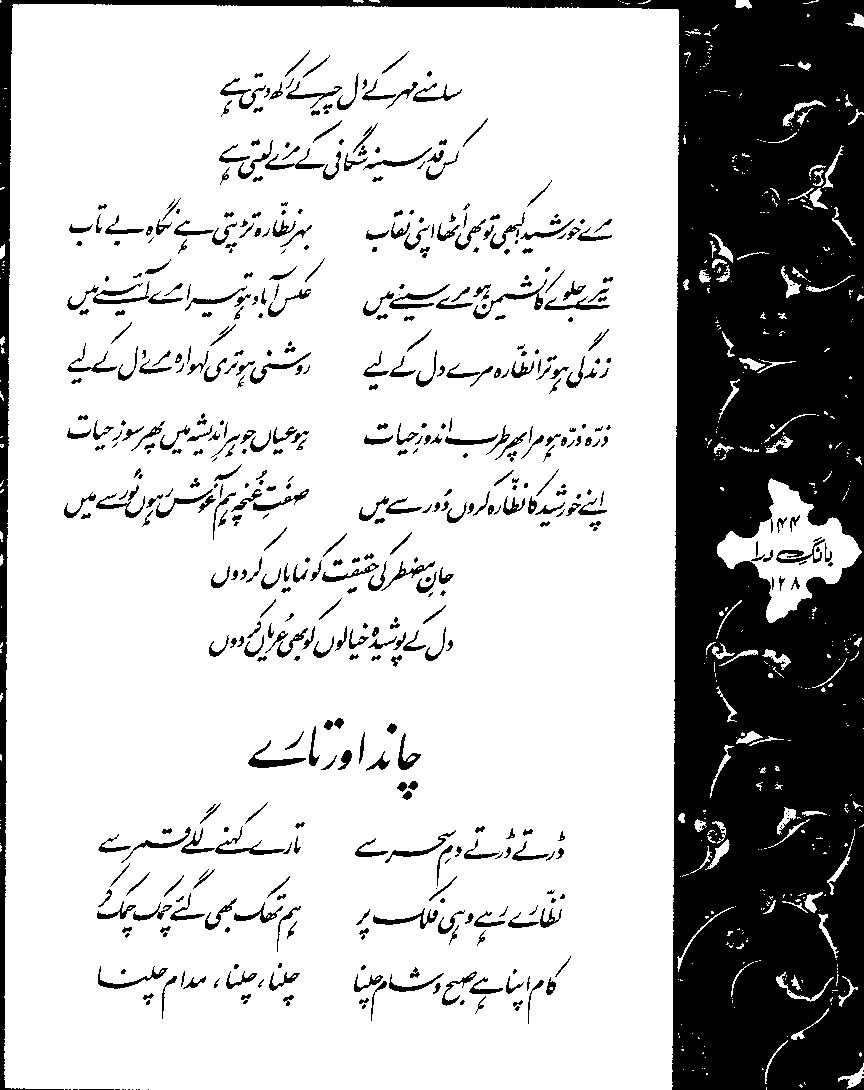 سامنے مہر کے دل چیر کے رکھ دیتی ہے
کس قدر سینہ شگافی کے مزے لیتی ہے
مرے خورشید! کبھی تو بھی اُٹھا اپنی نقاب بہرِ نظّارہ تڑپتی ہے نگاہِ بے تاب
تیرے جلوے کا نشیمن ہو مرے سینے میں عکس آباد ہو تیرا مرے آئینے میں
زندگی ہو ترا نظّارہ مرے دل کے لیے روشنی ہو تری گہوارہ مرے دل کے لیے
ذرّہ ذرّہ ہو مرا پھر طرب اندوزِ حیات ہو عیاں جوہرِ اندیشہ میں پھر سوزِ حیات
اپنے خورشید کا نظّارہ کروں دُور سے میں صفَتِ غُنچہ ہم آغوش رہوں نُور سے میں
جانِ مضطر کی حقیقت کو نمایاں کر دوں
دل کے پوشیدہ خیالوں کو بھی عُریاں کر دوں
چاند اور تارے
ڈرتے ڈرتے دمِ سحر سے تارے کہنے لگے قمر سے
نظّارے رہے وہی فلک پر ہم تھک بھی گئے چمک چمک کر
کام اپنا ہے صبح و شام چلنا چلنا، چلنا، مدام چلنا
۱۴۴
بانگِ درا
۱۲۸